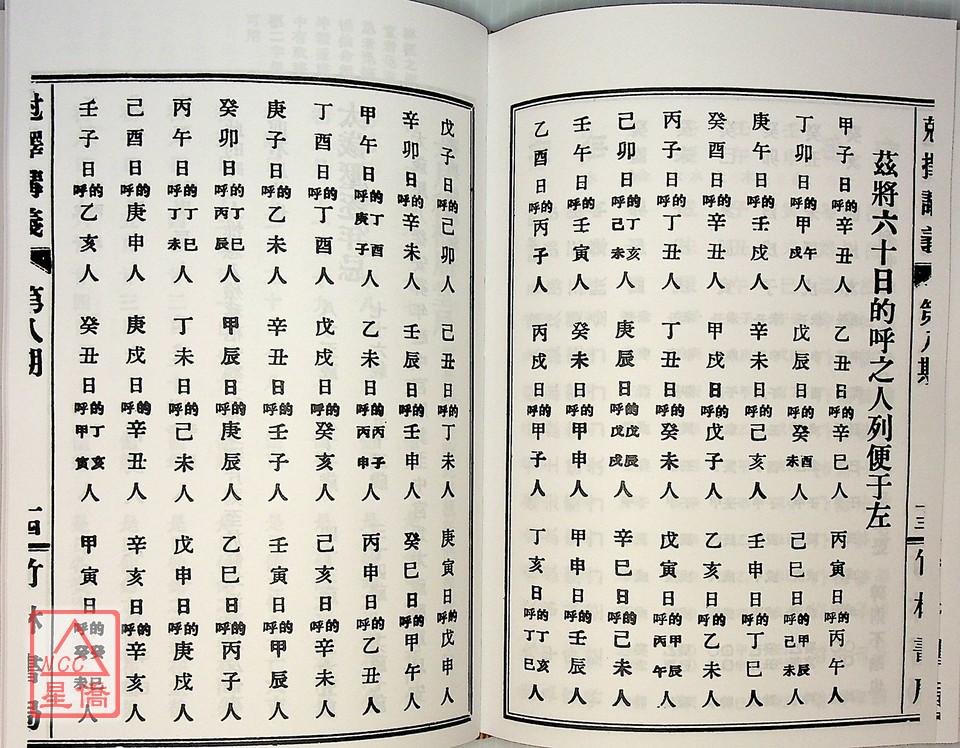 剋擇講義 第八期 十三 竹林書局
茲將六十日的呼之人列便于左
甲子日的呼辛丑人 乙丑日的呼辛巳人 丙寅日的呼丙午人
丁卯日的呼甲午戌人 戊辰日的呼癸酉未人 己巳日的呼甲辰己未人
庚午日的呼壬戌人 辛未日的呼己亥人 壬申日的呼丁巳人
癸酉日的呼辛丑人 甲戌日的呼戊子人 乙亥日的呼乙未人
丙子日的呼丁丑人 丁丑日的呼癸未人 戊寅日的呼甲辰丙午人
己卯日的呼丁亥己未人 庚辰日的呼戊辰戊戌人 辛巳日的呼己未人
壬午日的呼壬寅人 癸未日的呼甲申人 甲申日的呼壬辰人
乙酉日的呼丙子人 丙戌日的呼甲子人 丁亥日的呼丁亥丁巳人
戊子日的呼己卯人 己丑日的呼丁未人 庚寅日的呼戊申人
辛卯日的呼辛未人 壬辰日的呼壬申人 癸巳日的呼甲午人
甲午日的呼丁酉庚子人 乙未日的呼丙子丙申人 丙申日的呼乙丑人
丁酉日的呼丁酉人 戊戌日的呼癸亥人 己亥日的呼辛未人
庚子日的呼乙未人 辛丑日的呼壬子人 壬寅日的呼甲辰人
癸卯日的呼丁巳丙辰人 甲辰日的呼庚辰人 乙巳日的呼丙子人
丙午日的呼丁巳丁未人 丁未日的呼己未人 戊申日的呼庚戌人
己酉日的呼庚申人 庚戌日的呼辛丑人 辛亥日的呼辛亥人
壬子日的呼乙亥人 癸丑日的呼丁亥甲寅人 甲寅日的呼癸巳癸未人
第八期 十四 竹林書局
NCC
星僑